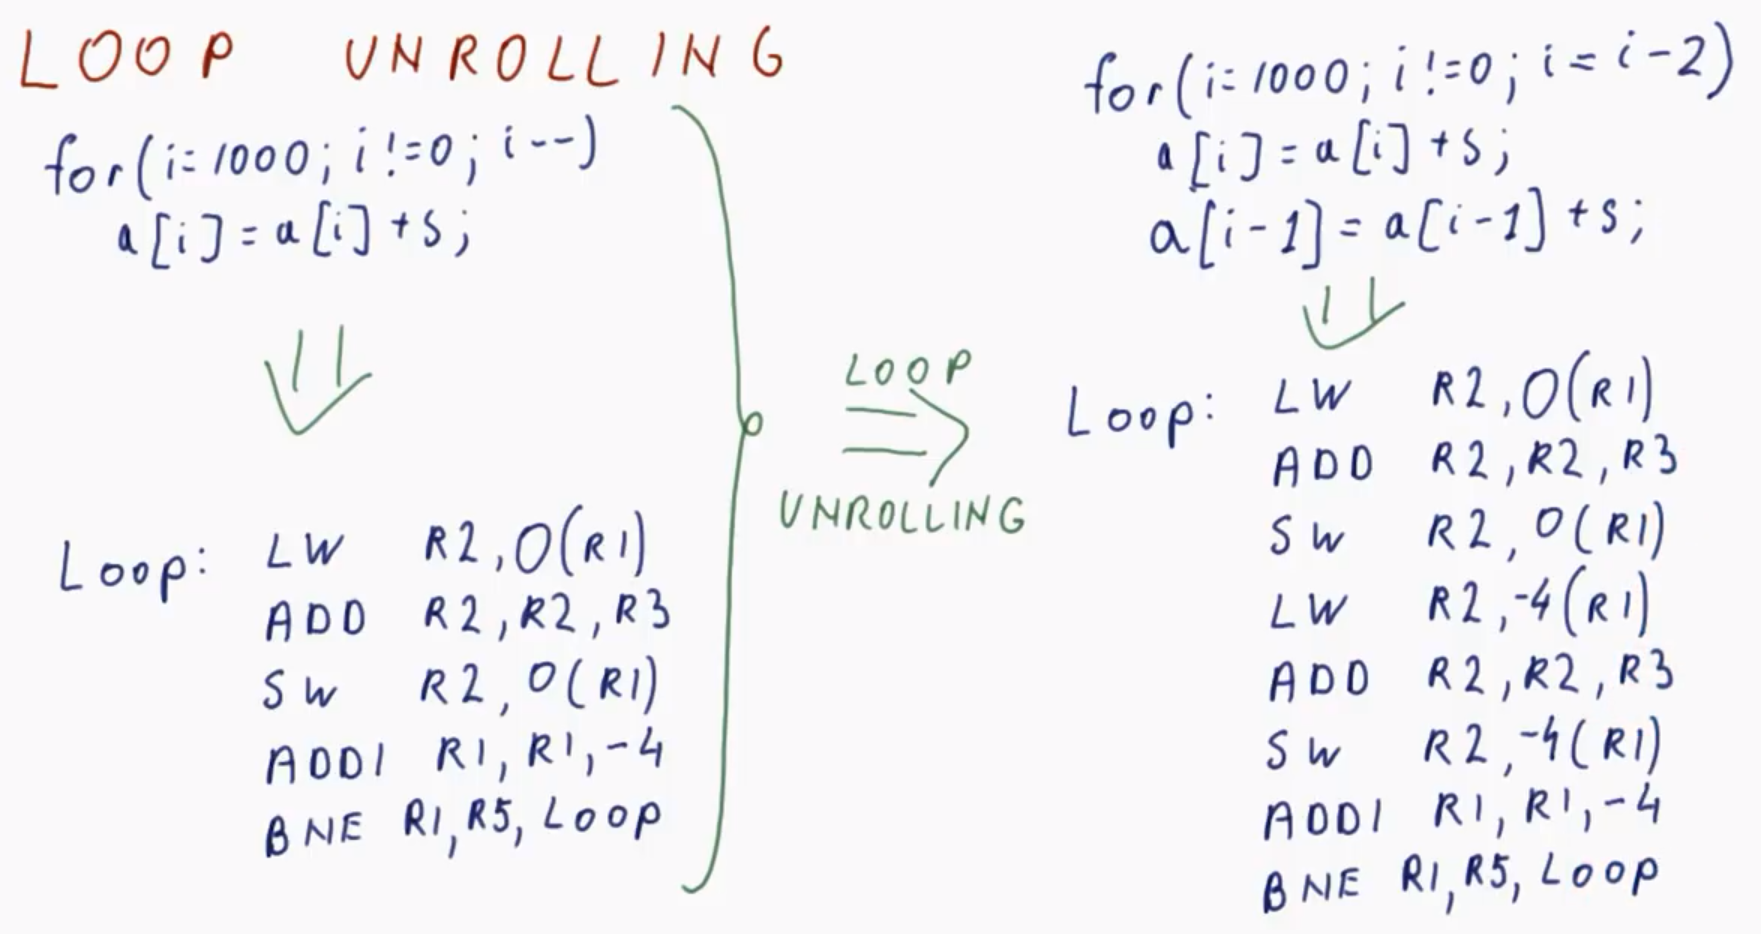 LOOP UNROLLING
for(i=1000; i!=0; i--)
a[i]=a[i]+s;
Loop: LW R2,0(R1)
ADD R2,R2,R3
SW R2,0(R1)
ADDI R1,R1,-4
BNE R1,R5,Loop
LOOP
UNROLLING
for(i=1000; i!=0; i=i-2)
a[i]=a[i]+s;
a[i-1]=a[i-1]+s;
Loop: LW R2,0(R1)
ADD R2,R2,R3
SW R2,0(R1)
LW R2,-4(R1)
ADD R2,R2,R3
SW R2,-4(R1)
ADDI R1,R1,-4
BNE R1,R5,Loop